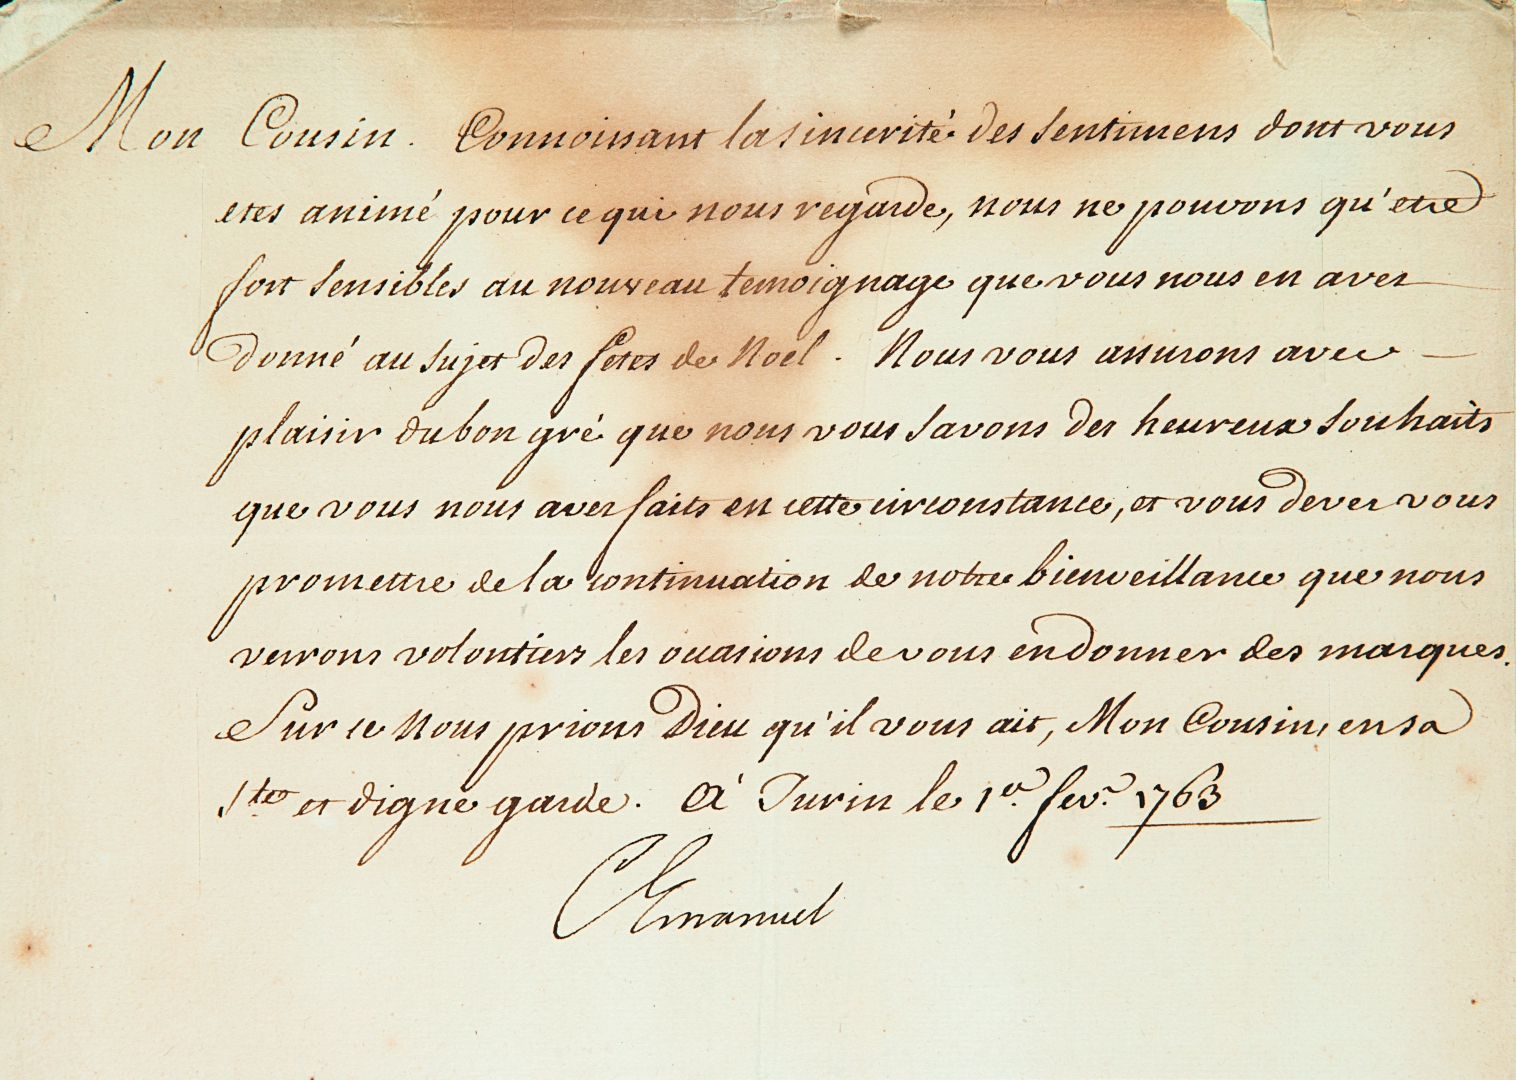 Mon Cousin. Connoissant la sincerité des sentimens dont vous
etes animé pour ce qui nous regarde, nous ne pouvons qu'etre
fort sensibles au nouveau temoignage que vous nous en avez
donné au sujet des fetes de Noel. Nous vous assurons avec
plaisir du bon gré que nous vous savons des heureux souhaits
que vous nous avez faits en cette circonstance, et vous devez vous
promettre de la continuation de notre bienveillance que nous
verrons volontiers les occasions de vous en donner des marques.
Sur ce Nous prions Dieu qu'il vous ait, Mon Cousin, en sa
Ste et digne garde. A Turin le 1er fevr. 1763
CEmanuel